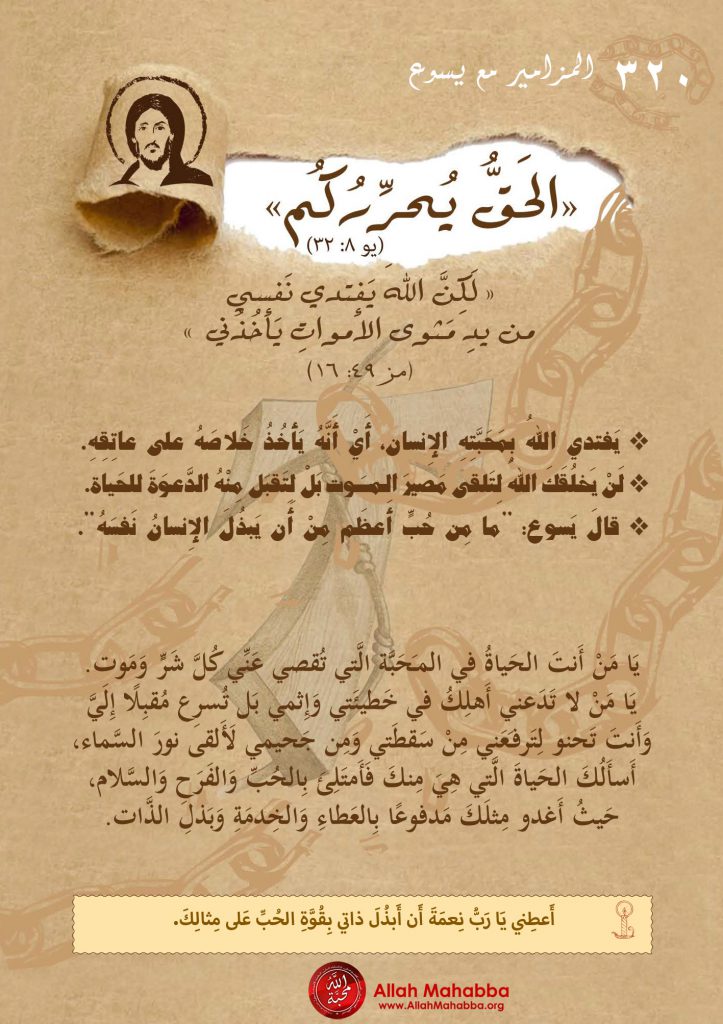 ٣٢٠ المزامير مع يسوع
«الحَقُّ يُحرِّرُكُم»
(يو ٨: ٣٢)
« لَكِنَّ اللهَ يَفتدي نَفسي
من يدِ مَثوى الأمواتِ يَأخُذُني »
(مز ٤٩: ١٦)
❖ يَفتدي اللهُ بِمَحَبَّتِهِ الإنسان، أَيْ أَنَّهُ يَأخُذُ خَلاصَهُ على عاتِقِهِ.
❖ لَنْ يَخلُقَكَ اللهُ لِتَلقَى مَصيرَ المَوت بَلْ لِتَقبَل مِنْهُ الدَّعوَةَ للحَياة.
❖ قالَ يَسوع: "ما مِن حُبٍّ أَعظَم مِنْ أَن يَبذُلَ الإنسانُ نَفسَهُ".
يَا مَنْ أَنتَ الحَياةُ في المَحَبَّة الَّتي تُقصي عَنِّي كُلَّ شَرٍّ وَمَوت.
يَا مَنْ لا تَدَعني أَهلِكُ في خَطيئَتي وَإِثمي بَل تُسرِع مُقبِلًا إِلَيَّ
وَأَنتَ تَحنو لِتَرفَعَني مِنْ سَقطَتي وَمِن جَحيمي لَأَلقى نورَ السَّماء،
أَسأَلُكَ الحَياةَ الَّتي هِيَ مِنكَ فَأَمتَلِئَ بِالحُبِّ وَالفَرَحِ وَالسَّلام،
حَيثُ أَغدو مِثلَكَ مَدفوعًا بِالعَطاءِ وَالخِدمَةِ وَبَذلِ الذَّات.
أَعطِني يَا رَبُّ نِعمَةَ أَن أَبذُلَ ذاتي بِقُوَّةِ الحُبِّ عَلى مِثالِكَ.
الله محبة
Allah Mahabba
www.AllahMahabba.org